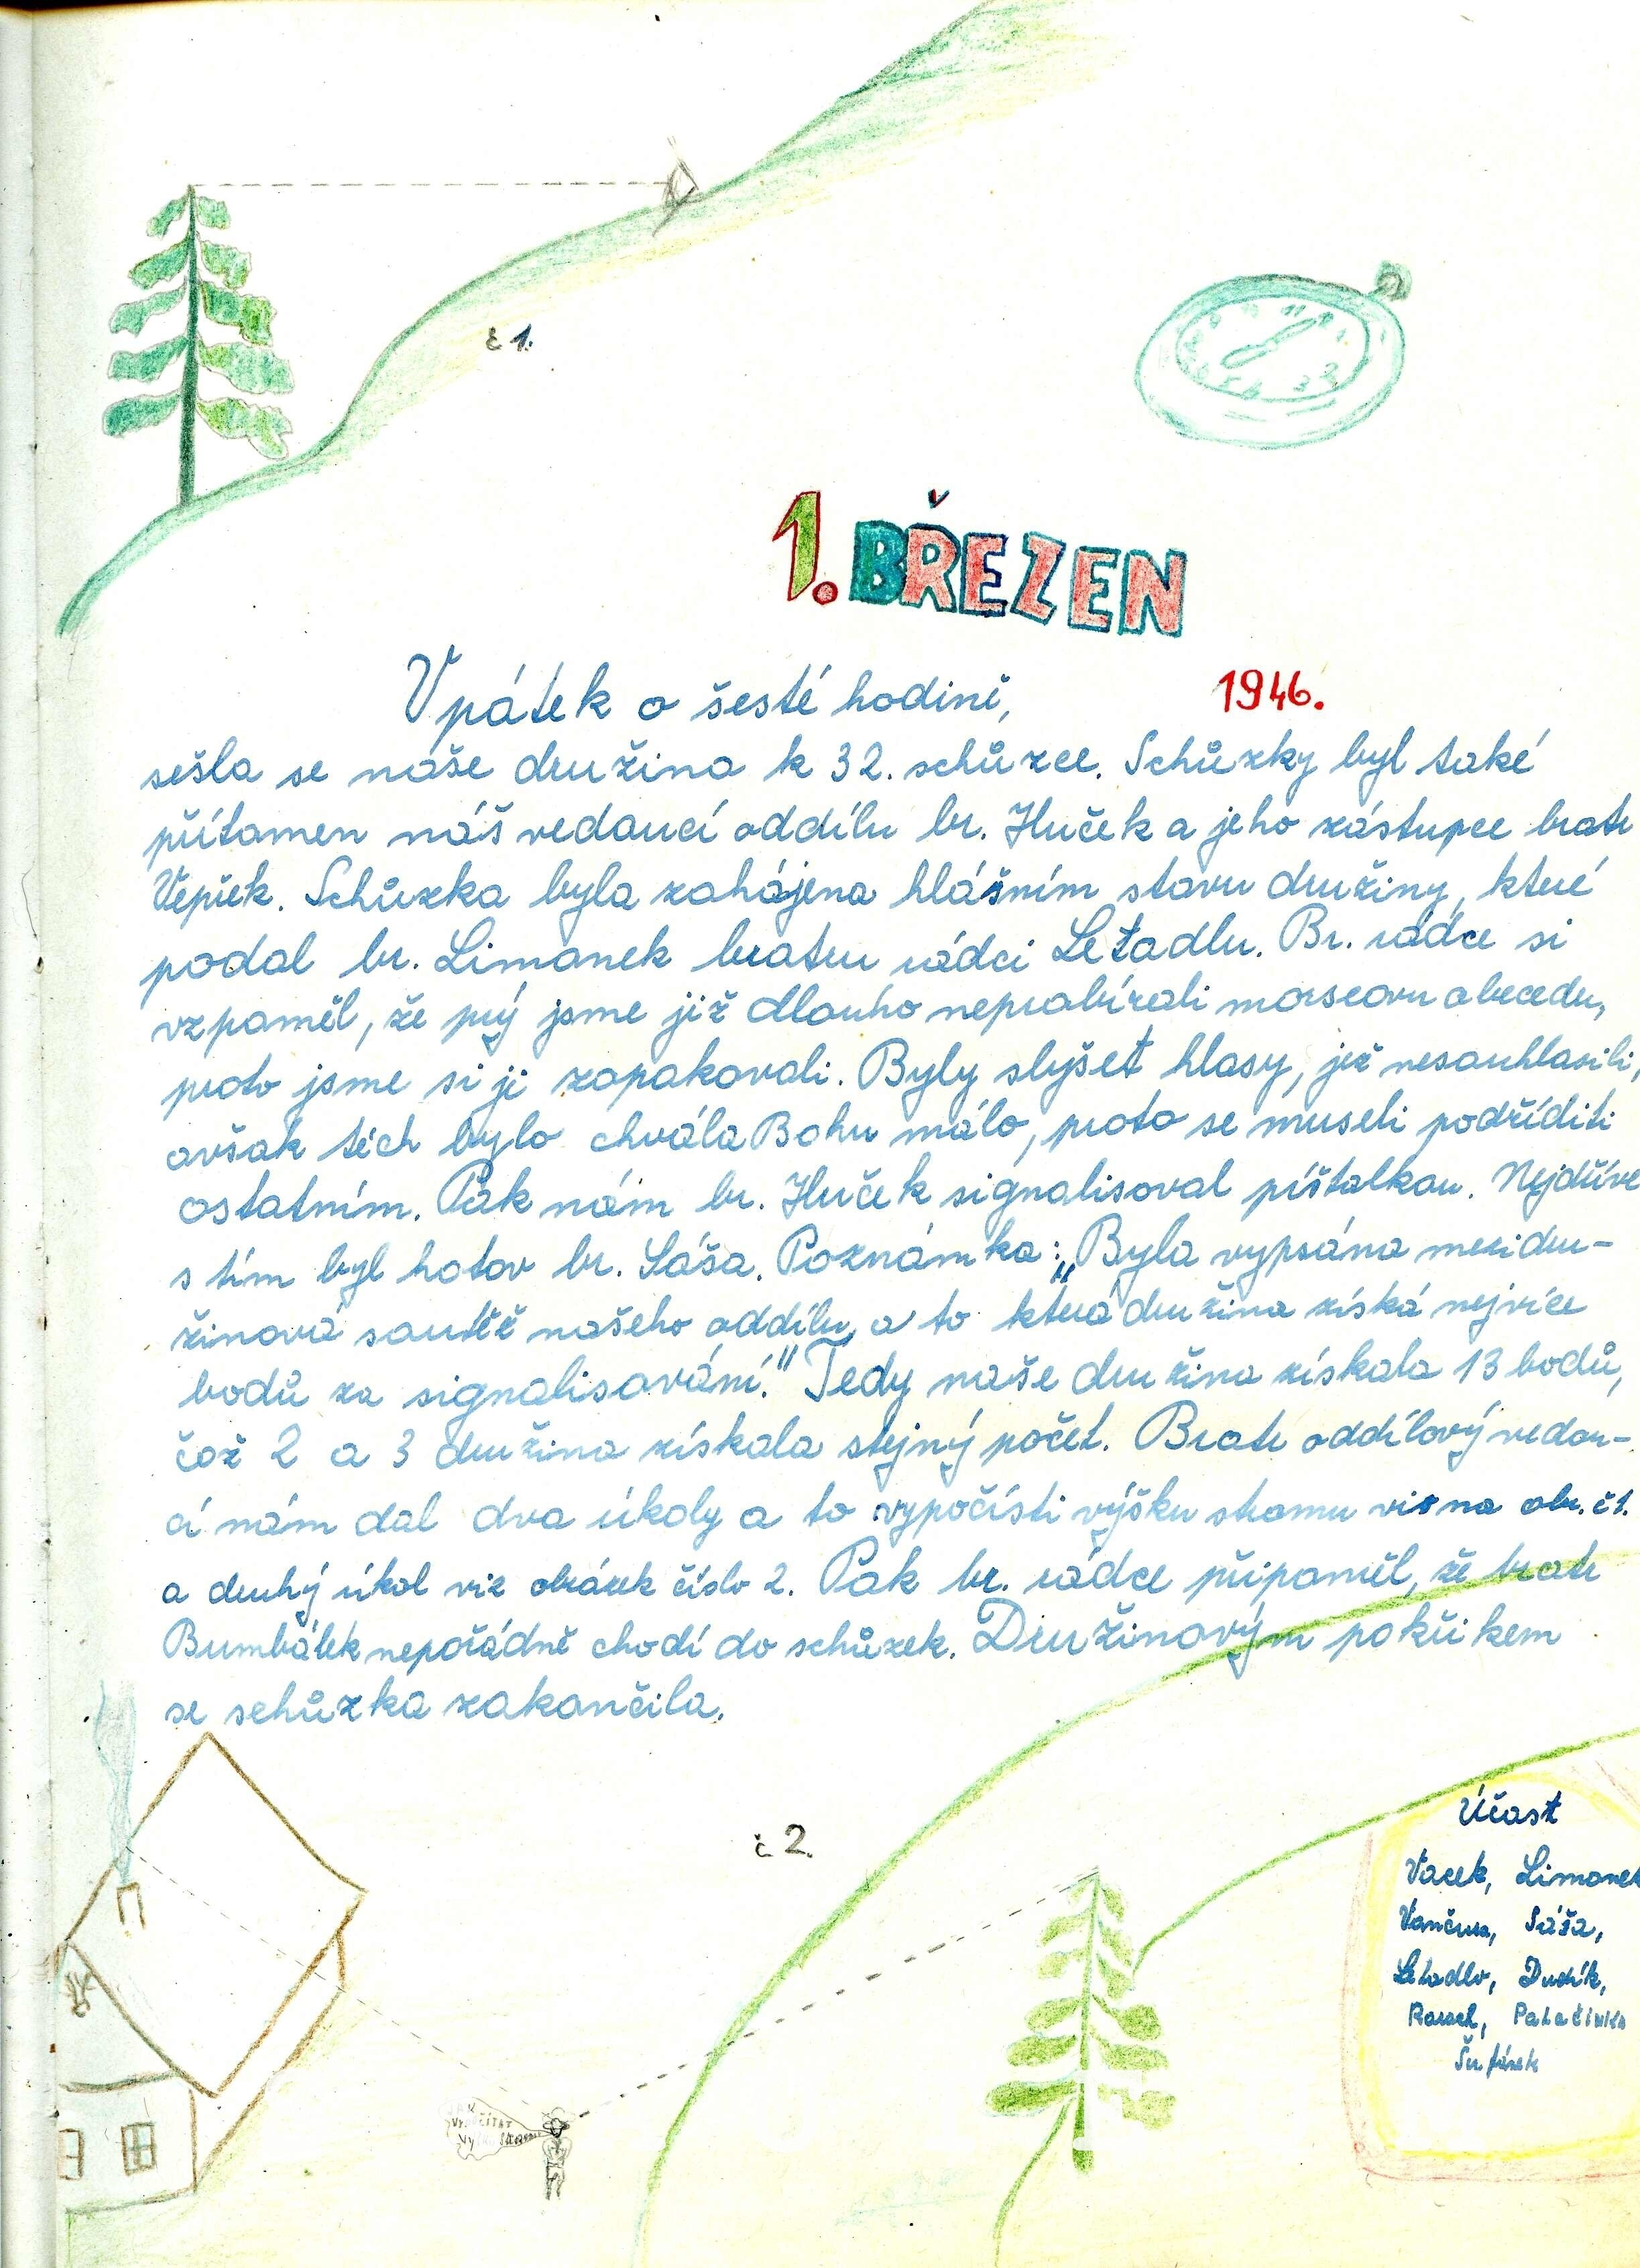 č 1.
1. BŘEZEN
1946.
V pátek o šesté hodině,
sešla se naše družina k 32. schůzce. Schůzky byl také
přítomen náš vedoucí oddílu br. Huček a jeho zástupce bratr
Vepřek. Schůzka byla zahájena hlášním stavu družiny, které
podal br. Limonek bratru rádci Letadlu. Br. rádce si
vzpoměl, že prý jsme již dlouho neprobírali morseovu abecedu,
proto jsme si ji zopakovali. Byly slyšet hlasy, jež nesouhlasili,
avšak těch bylo chvála Bohu málo, proto se museli podříditi
ostatním. Pak nám br. Huček signalisoval píšťalkou. Nejdříve
s tím byl hotov br. Sáša. Poznámka: „Byla vypsána mezidru-
žinová soutěž našeho oddílu, a to která družina získá nejvíce
bodů za signalisování." Tedy naše družina získala 13 bodů,
čož 2 a 3 družina získala stejný počet. Bratr oddílový vedou-
cí nám dal dva úkoly a to vypočísti výšku stromu viz na obr. č 1.
a druhý úkol viz obrázek číslo 2. Pak br. rádce připoměl, že bratr
Bumbálek nepořádně chodí do schůzek. Družinovým pokřikem
se schůzka zakončila.
č 2.
Účast
Vacek, Limonek
Vančura, Sáša,
Letadlo, Dudík,
Palačinka
JAK
VYPOČÍTAT